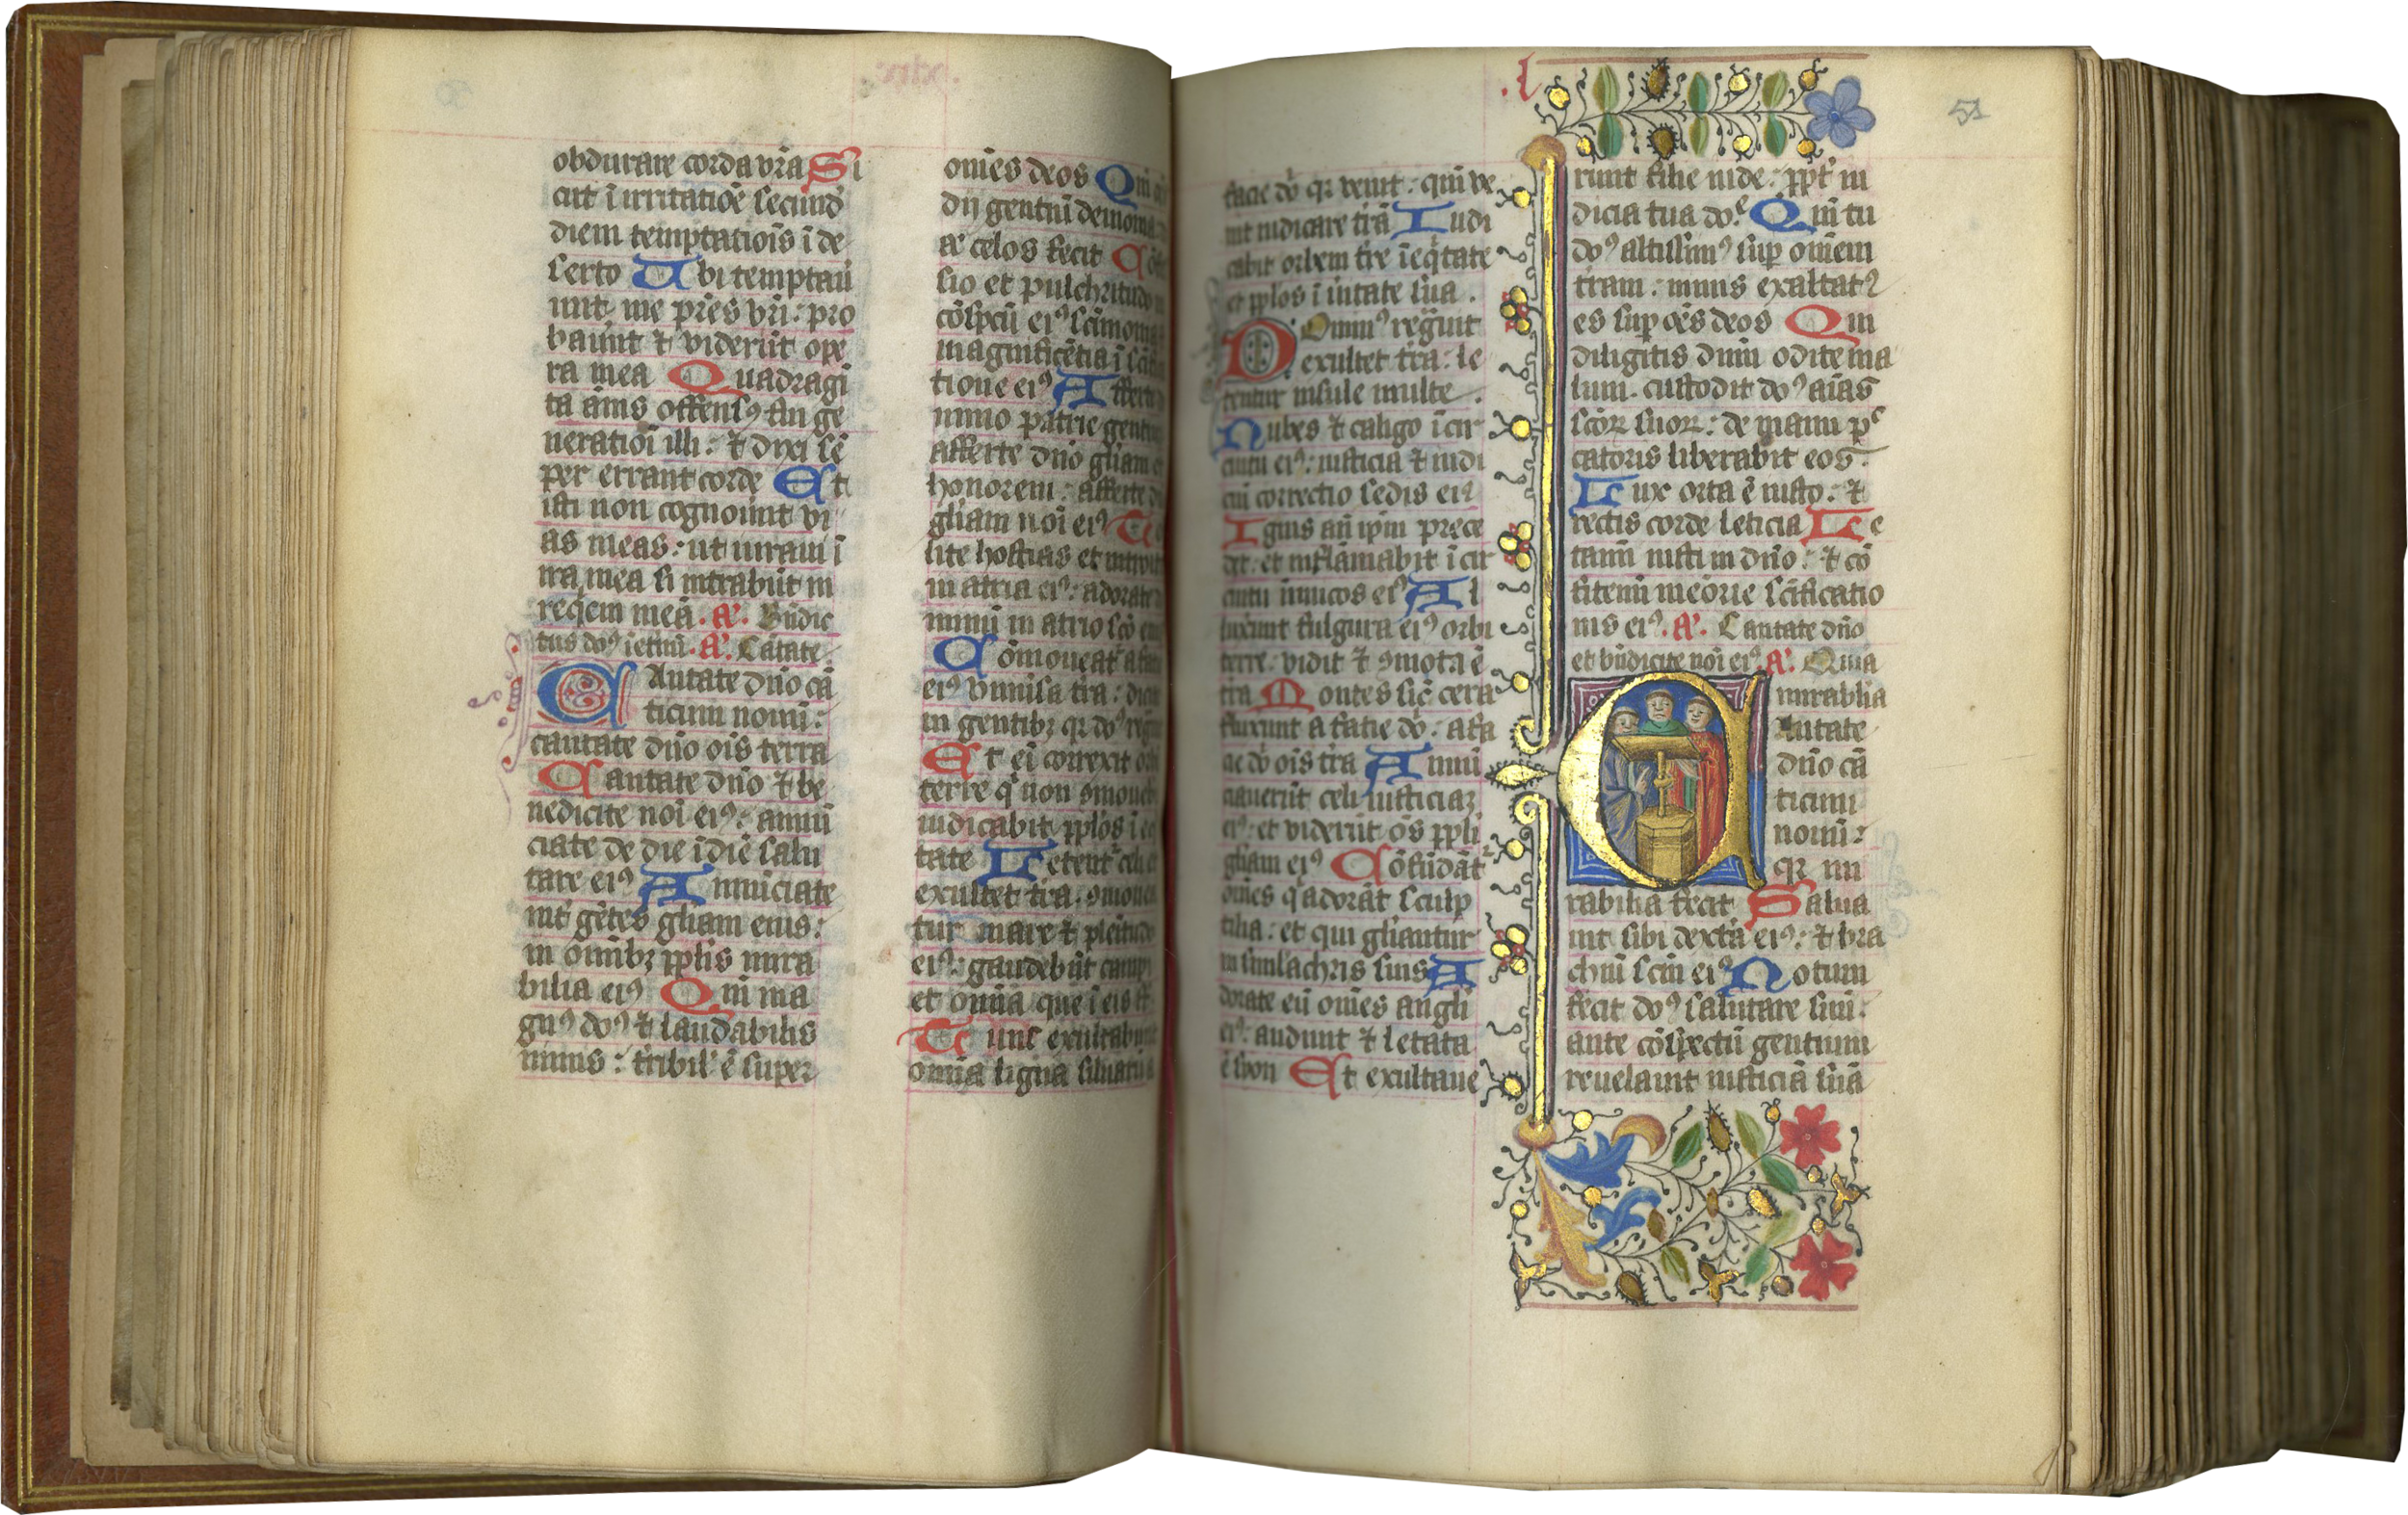 obdurare corda vr̄a Si
cut ī irritatiōe secund
diem temptatiōis ī de
serto Ubi temptaū
unt me pr̄es vr̄i: pro
bauūt ⁊ viderūt ope
ra mea Quadragī
ta ānis offensꝰ fui ge
neratiōi illi: ⁊ dixi sē
per errant corde Et
isti non cognoūnt vi
as meas: ut iuraui ī
ira mea si intrabūt in
reqem meā. A. Bn̄dic
tus doꝰ ī etnū. A. Cātate
CAntate dn̄o cā
ticum nouū:
cantate dn̄o oīs terra
Cantate dn̄o ⁊ be
nedicite noī eiꝰ: annū
ciate de die ī diē salu
tare eiꝰ Annūciate
int gētes gliam eius:
in omībꝫ pplis mira
bilia eiꝰ Qm̄ ma
gnꝰ doꝰ ⁊ laudabilis
nimis: tribil' ē super
xlix
om̄es deos Qm̄
dij gentiū demonia
āt celos fecit Cōf
sio et pulchritudo
cōspcū eiꝰ scīmonia
magnificētia ī scīfi
tione eiꝰ Afferte
mino patrie gentiū
afferte dn̄o gliam et
honorem: afferte
gliam noī eiꝰ To
lite hostias et introite
in atria eiꝰ: adorate
minū in atrio scō
Cōmoueat' a facie
eiꝰ vniūsa tra: dicite
in gentibꝫ qꝛ doꝰ regn
Et eī correxit orb
terre q̄ non ōmoueb
iudicabit pplos ī eq
tate Letent' celi et
exultet tra. ōmouea
tur mare ⁊ plenitudo
eiꝰ: gaudebūt campi
et omīa que ī eis sūt
Tunc exultabunt
omīa ligna siluarū a
l
facie dō qꝛ venit: qm̄ ve
nit iudicare trā Iudi
cabit orbem tre ī eq̄tate
et pplos ī ūitate sua.
Dominꝰ regnauit
exultet tra: le
tentur insule multe.
Nubes ⁊ caligo ī cir
cuitu eiꝰ: iusticia ⁊ iudi
ciū correctio sedis eiꝰ
Ignis an̄ ipm̄ prece
det: et inflāmabit ī cir
cuitu inimicos eiꝰ Al
luxerunt fulgura eiꝰ orbi
terre: vidit ⁊ ōmota ē
tra Montes sic̄ cera
fluxerunt a facie dō: a fa
cie dō oīs tra Annū
ciauerūt celi iusticiaꝫ
eiꝰ: et viderūt oēs ppli
gliam eiꝰ Cōfūdāt'
omēs q̄ adorāt sculp
tilia: et qui gliantur
in simlachris suis A
dorate eū omēs angli
eiꝰ: audiuit ⁊ letata
ē syon Et exultaue
51
runt filie iude: ppt' iu
dicia tua doē Qm̄ tu
doꝰ altissimꝰ sup omēm
tram: nimis exaltatꝰ
es sup oēs deos Qui
diligitis dnm̄ odite ma
lum. custodit doꝰ aīas
scōꝝ suoꝝ: de manu pc
catoris liberabit eos.
Lux orta ē iusto: ⁊
rectis corde leticia Le
tamī iusti in dn̄o: ⁊ cō
fitemī meōrie scīficatio
nis eiꝰ. A. Cantate dn̄o
et bn̄dicite noī eiꝰ. A. Quia
mirabilia
CAntate
dn̄o cā
ticum
nouū:
qꝛ mi
rabilia fecit Salua
uit sibi dext̄a eiꝰ: ⁊ bra
chiū scm̄ eiꝰ Notum
fecit doꝰ salutare suū:
ante cōspectū gentium
reuelauit iusticiā suā